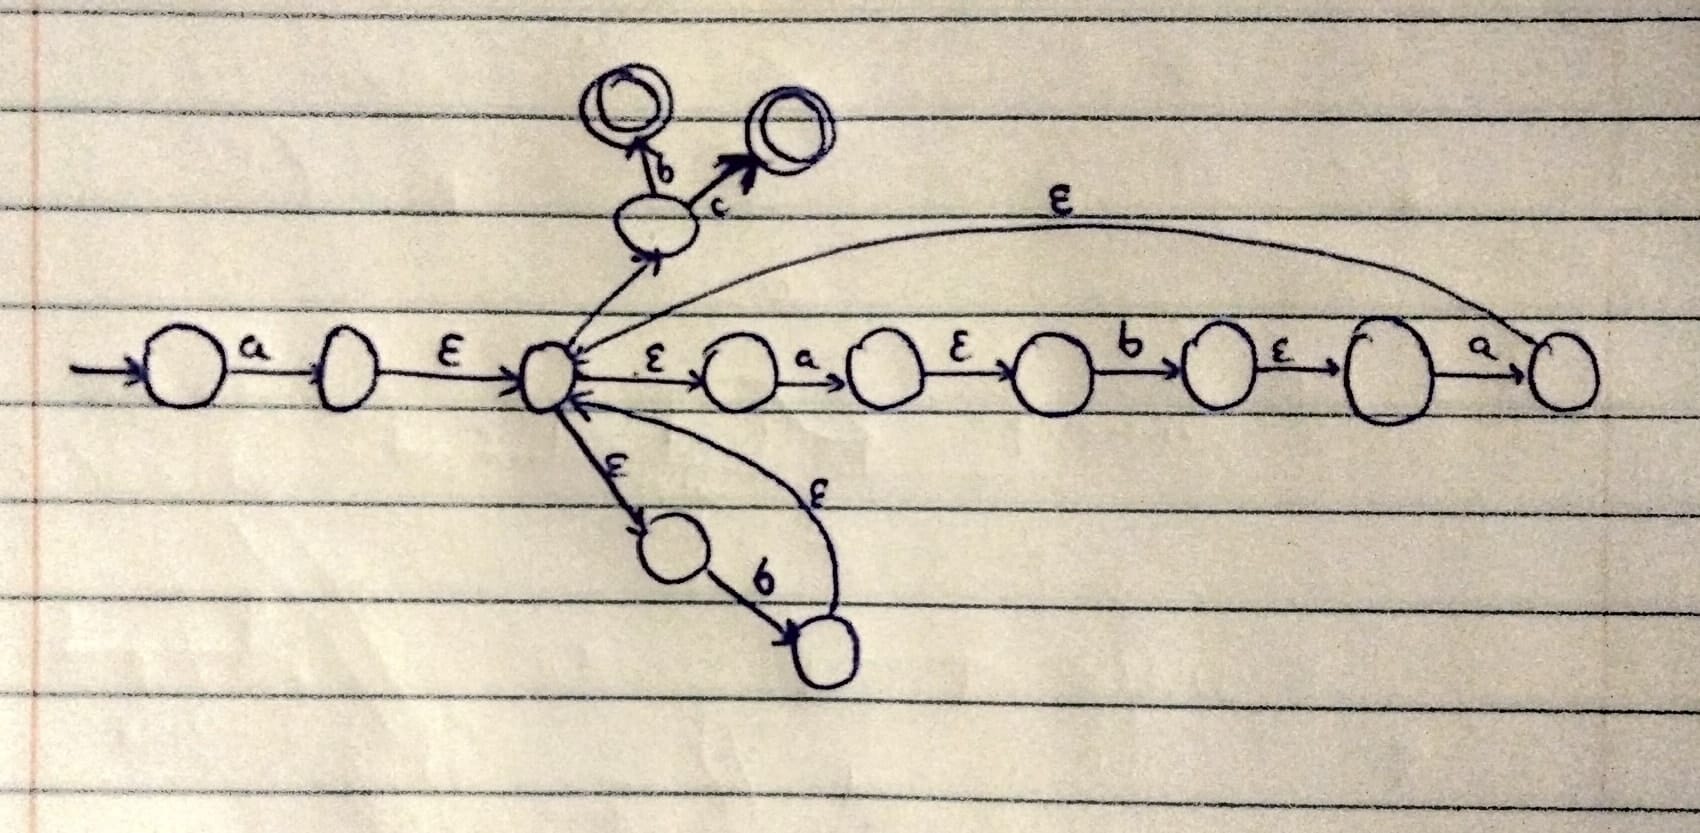 b
c
ε
a ε ε a ε b ε a
ε
ε
b